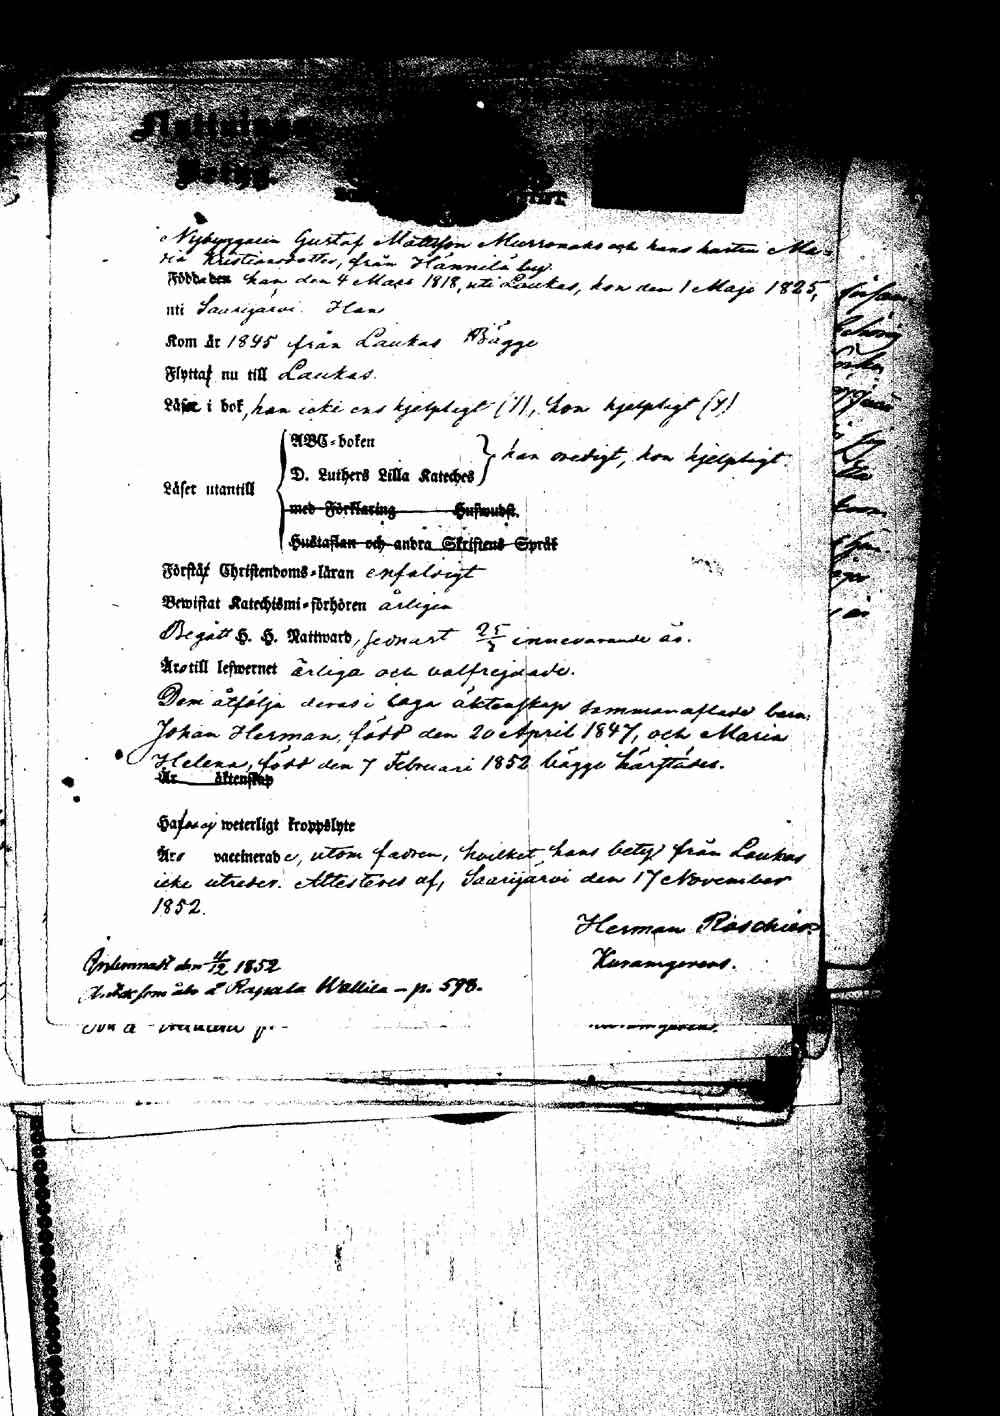 Flyttnings-
Betyg.
Nybyggaren Gustaf Mattsson Murronaho och hans hustru Ma-
ria Kristiansdotter, från Hännilä by.
Födde den han den 4 Mars 1818, uti Laukas, hon den 1 Maji 1825,
uti Saarijärvi. Han
Kom år 1845 från Laukas Bägge
Flytta nu till Laukas.
Läser i bok, han icke ens hjelpligt (1), hon hjelpligt
Läser utantill
ABC-boken
D. Luthers Lilla Kateches
han oredigt, hon hjelpligt.
med Förklaring Huswudst.
Hustaflan och andra Skriftens Språk
Förstå Christendoms-läran enfaldigt
Bewistat Katechismi-förhören årligen
Begått H. H. Nattward, senast 25/7 innevarande år.
Äro till lefwernet ärliga och välfrejdade.
Dem åtfölja deras i laga äktenskap sammanaflade barn:
Johan Herman, född den 20 April 1847, och Maria
Helena, född den 7 Februari 1852 bägge härstädes.
Är äktenskap
Hafva ej weterligt kroppslyte
Äro vaccinerade, utom fadren, hvilket hans betyg från Laukas
icke utreder. Attesteres af, Saarijärvi den 17 November
1852.
Herman Roschier
V.curamgerens.
Inlemnadt den 4/12 1852
som åbo å Rapala Wallila – p. 593.